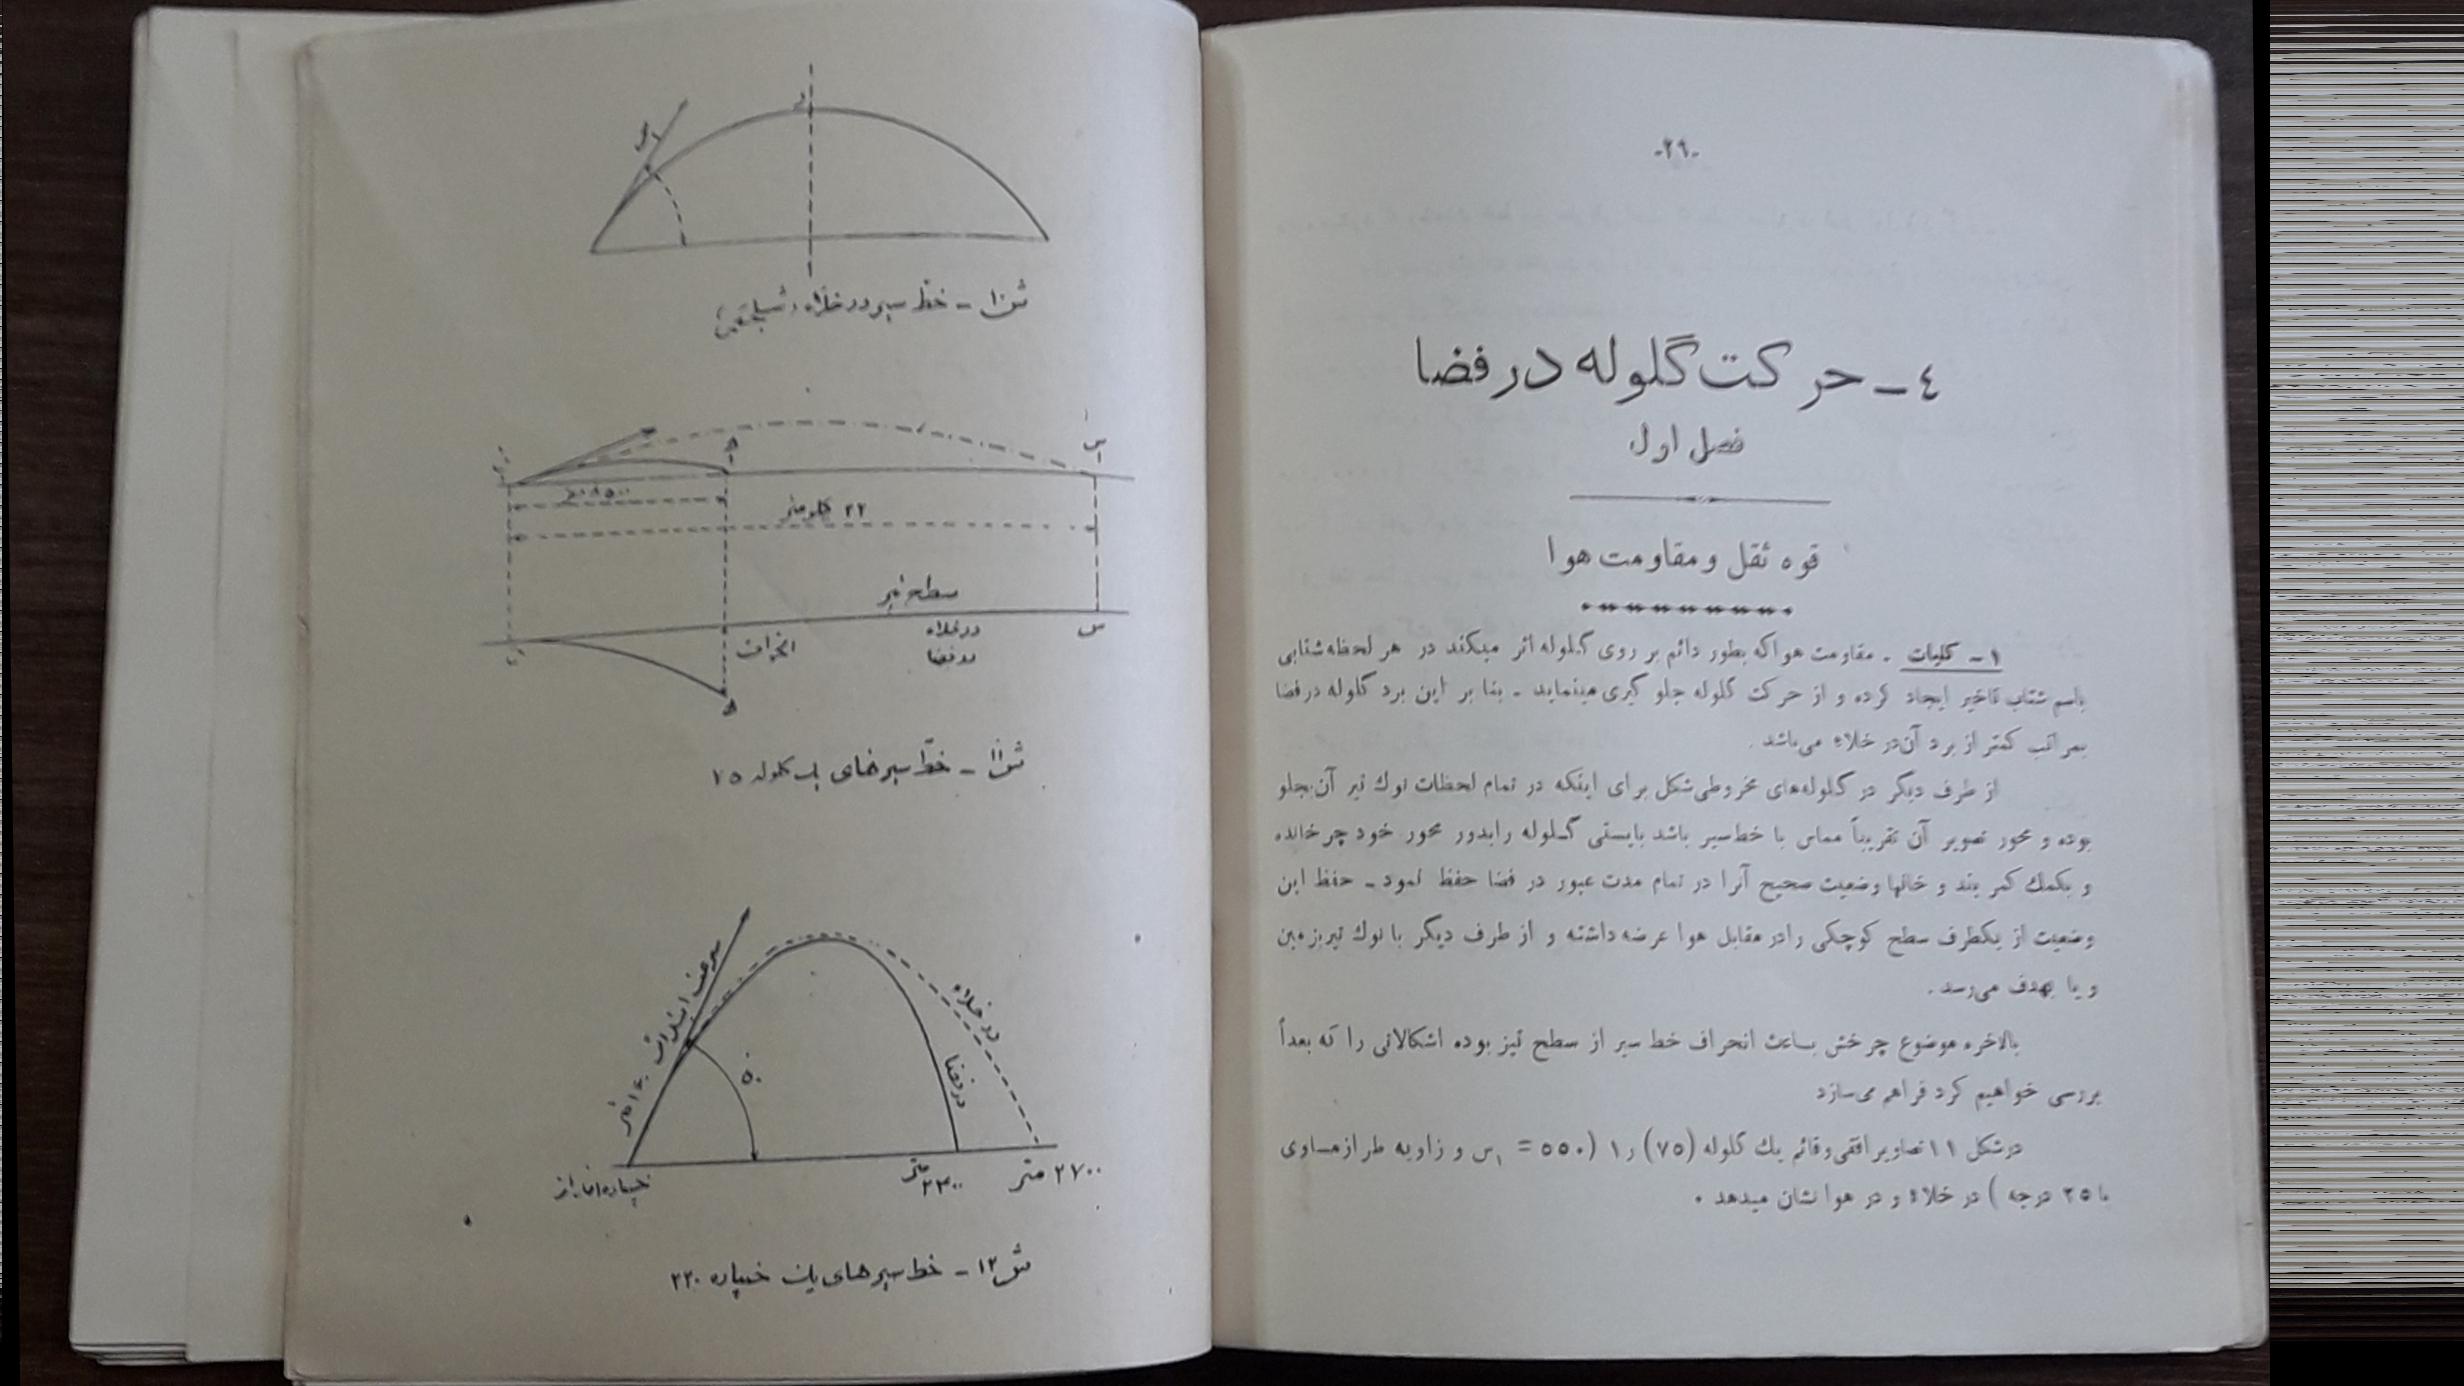 -۲۹-
٤ ـ حرکت گلوله در فضا
فصل اول
قوه ثقل و مقاومت هوا
۱ ـ کلیات ـ مقاومت هوا که بطور دائم بر روی گلوله اثر میکند در هر لحظه شتابی
باسم شتاب تاخیر ایجاد کرده و از حرکت گلوله جلو گیری مینماید ـ بنا بر این برد گلوله در فضا
بمراتب کمتر از برد آن در خلاء می‌باشد .
از طرف دیگر در گلوله‌های مخروطی شکل برای اینکه در تمام لحظات نوك تیر آن بجلو
بوده و محور تصویر آن تقریباً مماس با خط سیر باشد بایستی گلوله را بدور محور خود چرخانده
و بکمك کمر بند و خانها وضعیت صحیح آنرا در تمام مدت عبور در فضا حفظ نمود ـ حفظ این
وضعیت از یکطرف سطح کوچکی را در مقابل هوا عرضه داشته و از طرف دیگر با نوك تیر بزمین
و یا بهدف می‌رسد .
بالاخره موضوع چرخش بساعث انحراف خط سیر از سطح تیز بوده اشکالاتی را که بعداً
بررسی خواهیم کرد فراهم می‌سازد
در شکل ۱۱ تصاویر افقی و قائم یك گلوله (۷۵) را (۵۵۰ = س۱ و زاویه طراز مساوی
با ۲۵ درجه ) در خلاء و در هوا نشان میدهد .
ش ۱۰ ـ خط سیر در خلاء
س
۸۵۰۰ متر
۲۲ کلومتر
سطح تیر
در خلاء
در فضا
س
انحراف
ش ۱۱ ـ خط سیرهای یك گلوله ۷۵
سرعت ابتدائی ۱۶۰ متر
۵۰
در خلاء
در فضا
خمپاره انداز
۲۳۰۰ متر
۲۷۰۰ متر
ش ۱۲ ـ خط سیرهای یك خمپاره ۲۲۰